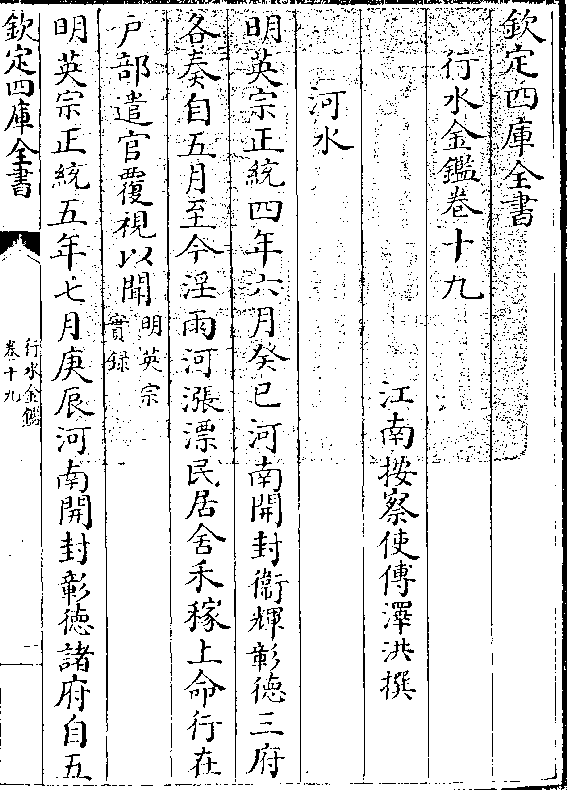 欽定四庫全書
行水金鑑卷十九
江南按察使傅澤洪撰
河水
明英宗正統四年六月癸巳河南開封衛輝彰德三府
各奏自五月至今淫雨河漲漂民居舍禾稼上命行在
户部遣官覆視以聞明英宗
實録
明英宗正統五年七月庚辰河南開封彰德諸府自五
欽定四庫全書
行水金鑑
卷十九
一